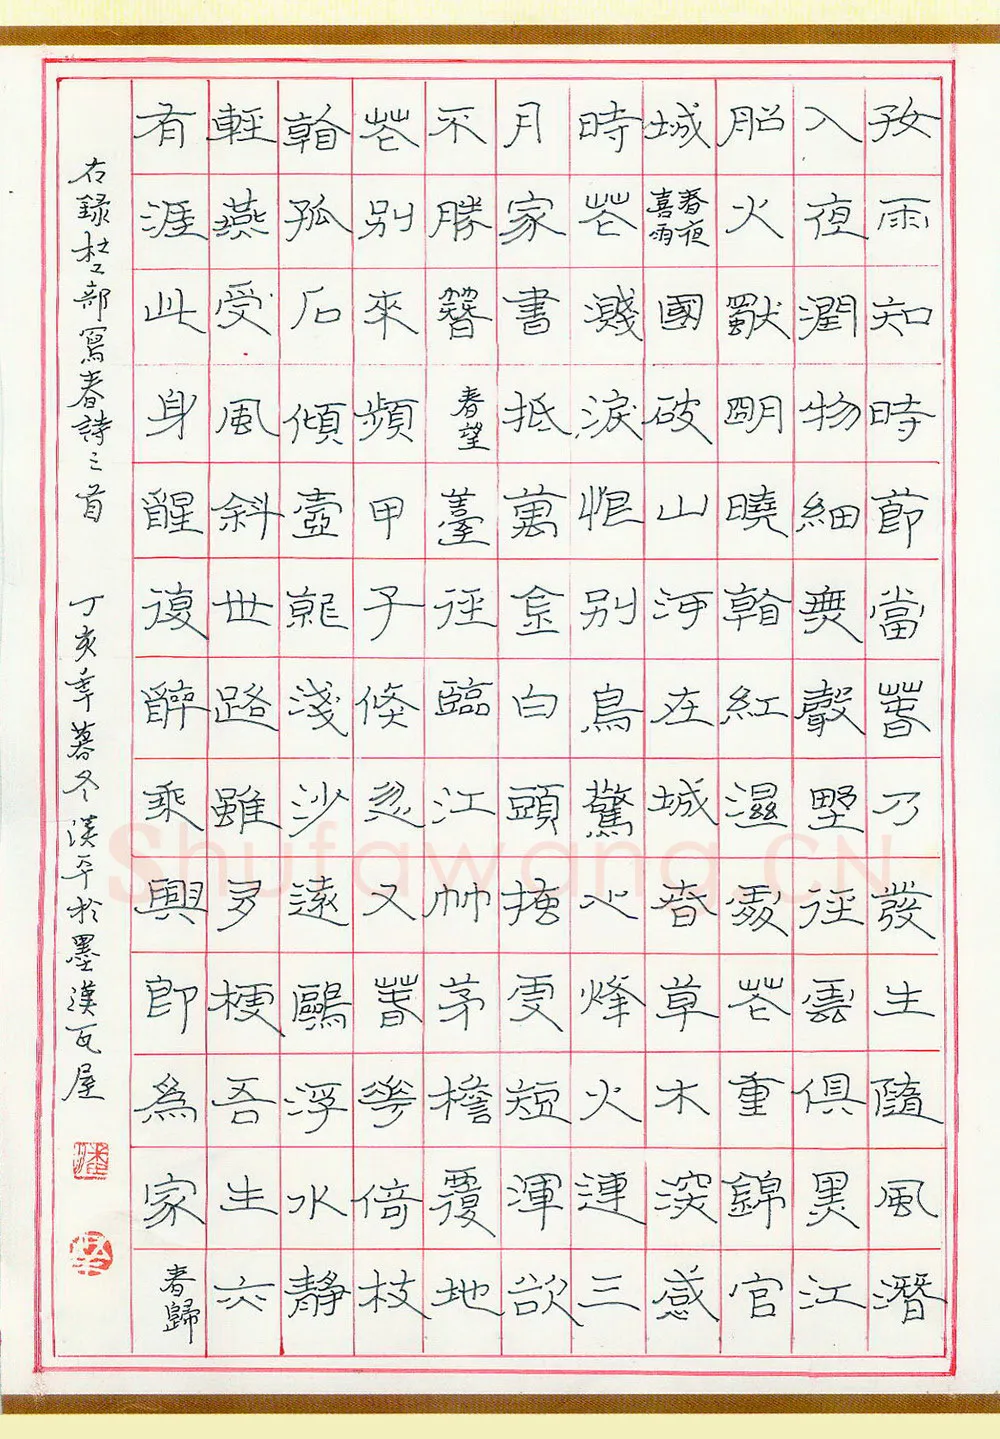 好雨知時節當春乃發生隨風潛
入夜潤物細無聲野徑雲俱黑江
船火獨明曉看紅濕處花重錦官
城春夜喜雨國破山河在城春草木深感
時花濺淚恨別鳥驚心烽火連三
月家書抵萬金白頭搔更短渾欲
不勝簪春望薹徑臨江竹茅檐覆地
花別來頻甲子倏忽又春華倚枝
看孤石傾壺就淺沙遠鷗浮水靜
輕燕受風斜世路雖多梗吾生亦
有涯此身醒復醉乘興即為家春歸
右錄杜工部寫春詩三首 丁亥年暮冬漢平於墨漢瓦屋
潘
Shufawang.CN